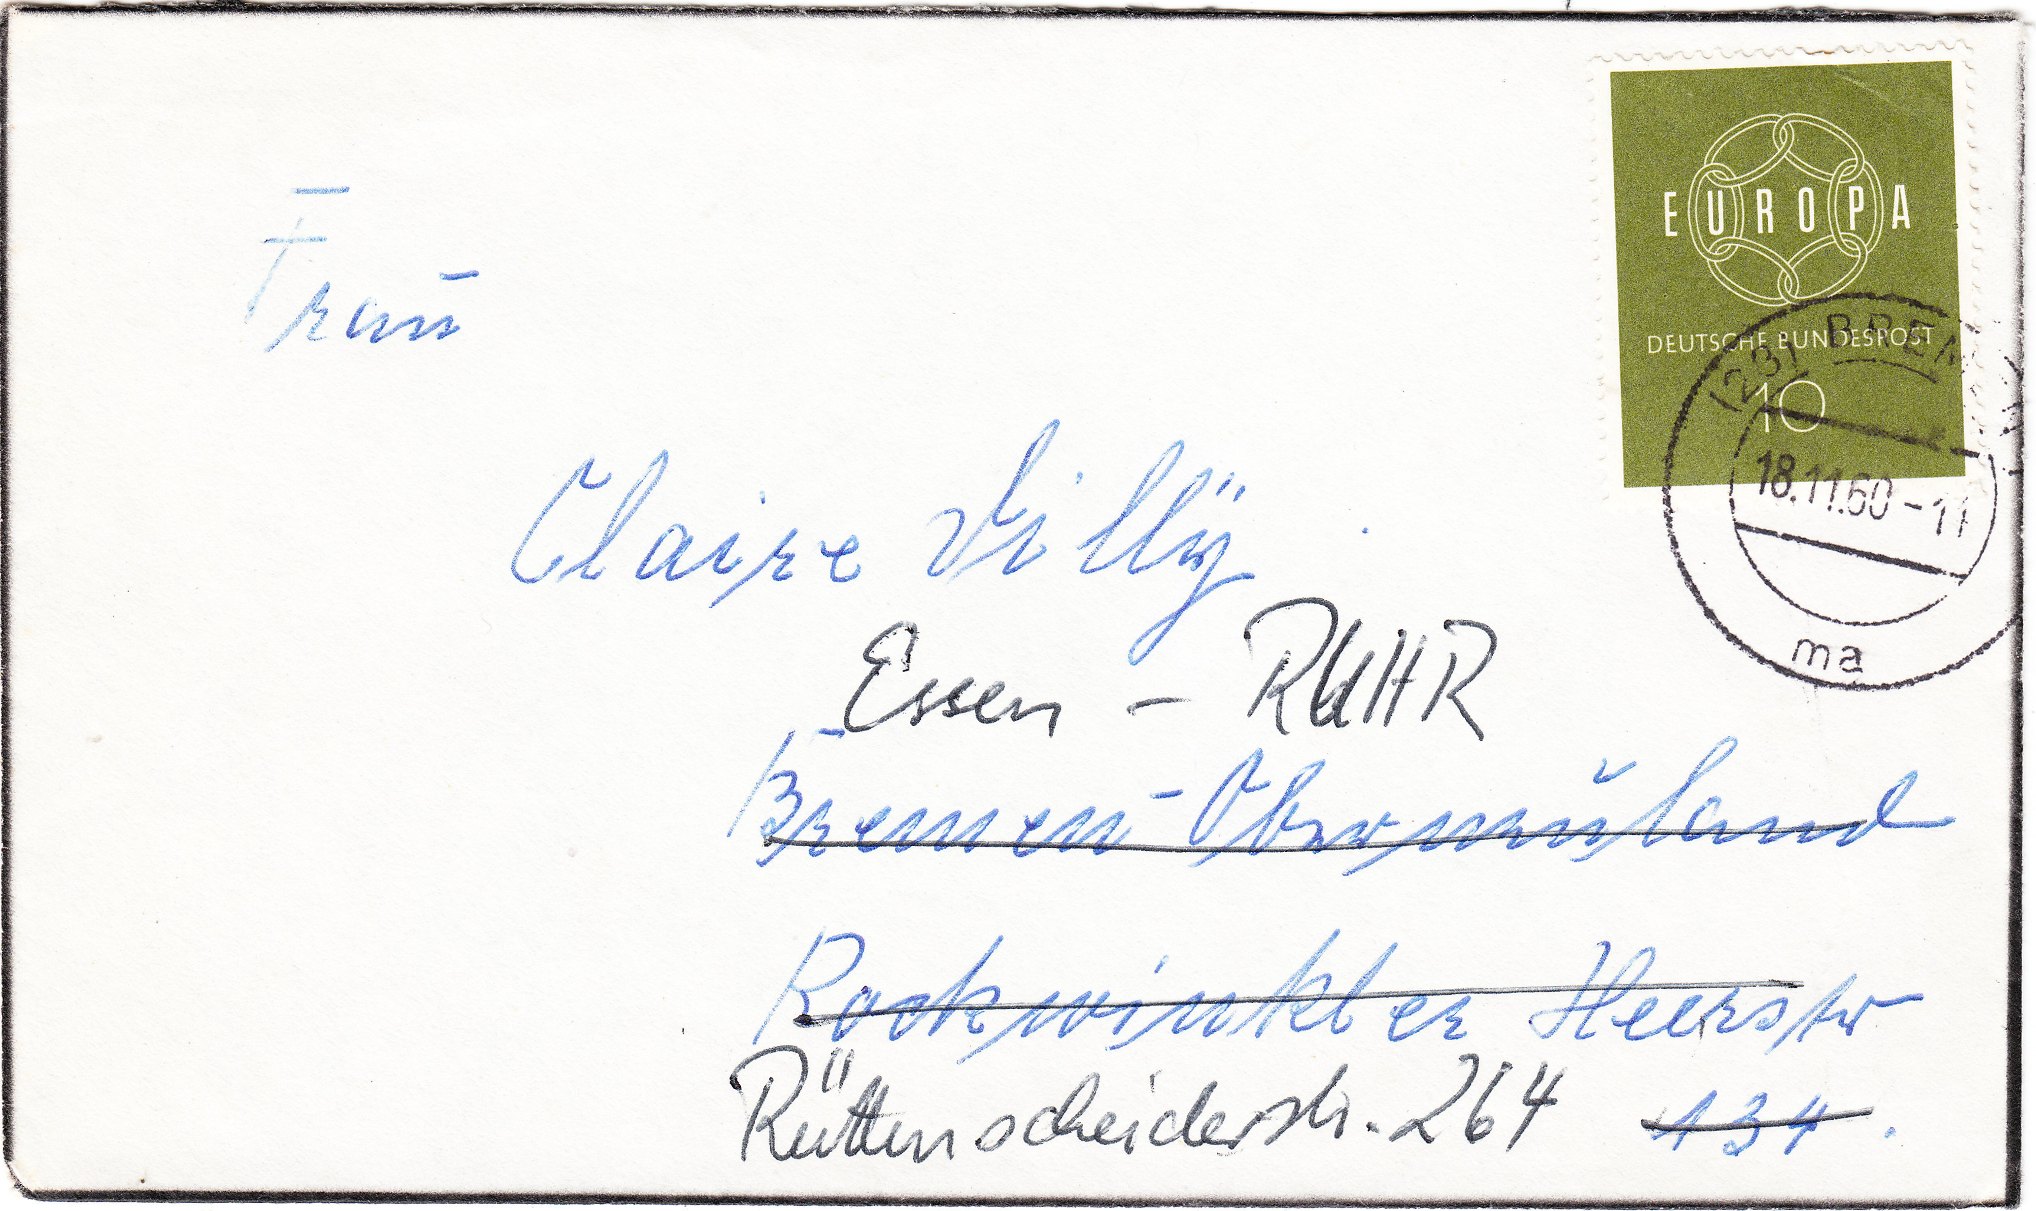 EUROPA
DEUTSCHE BUNDESPOST
10
(23) BREMEN
18.11.60-11
ma
Frau
Claire
Essen - RUHR
Bremen-Oberneuland
Rockwinkler Heerstr
Rüttenscheiderstr. 264
134.